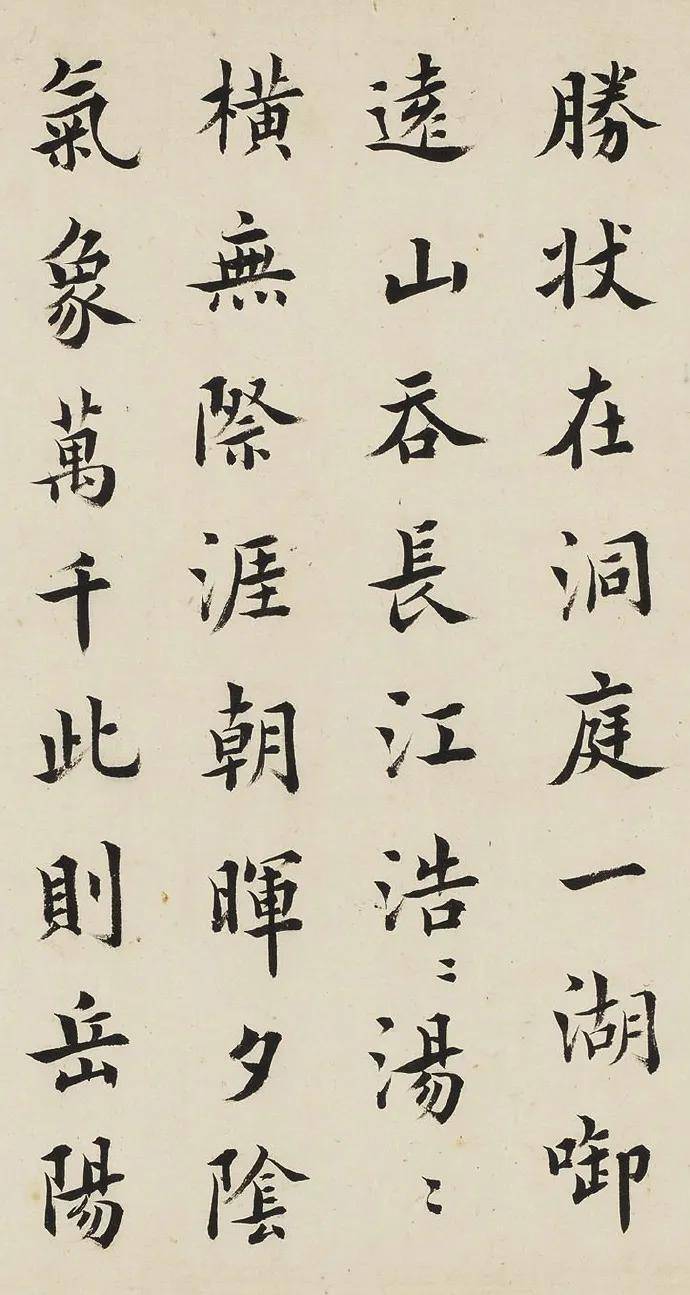 勝状在洞庭一湖啣
遠山吞長江浩〻湯〻
橫無際涯朝暉夕陰
氣象萬千此則岳陽